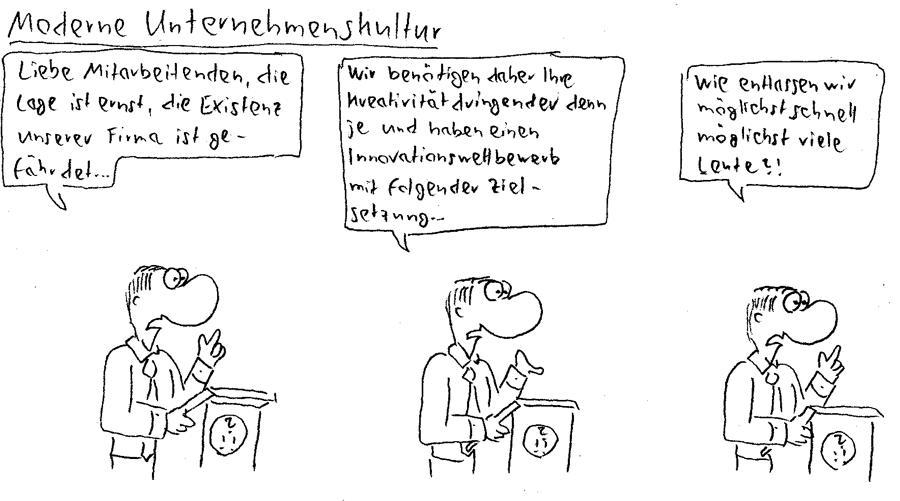 Moderne Unternehmenskultur
Liebe Mitarbeitenden, die
Lage ist ernst, die Existenz
unserer Firma ist ge-
fährdet...
Wir benötigen daher Ihre
Kreativität dringender denn
je und haben einen
Innovationswettbewerb
mit folgender Ziel-
setzung...
Wie entlassen wir
möglichst schnell
möglichst viele
Leute?!